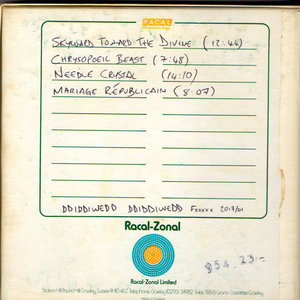 RACAL
SKYWARD TOWARD THE DIVINE (12:44)
CHRYSOPOEIL BEAST (7:48)
NEEDLE CRYSTAL (14:10)
MARIAGE RÉPUBLICAIN (8:07)
DDIDDIWEDD DDIDDIWEDD
Racal-Zonal
Racal-Zonal Limited
854.23-